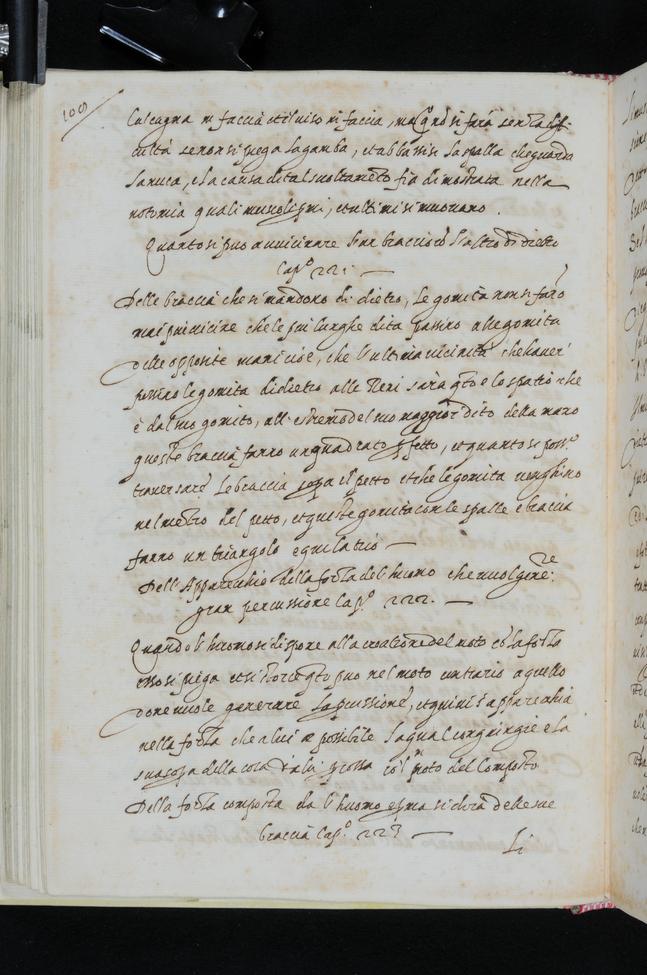 108
calcagna in faccia et il uiso in faccia, ma q.o nō si farà senza diffi
cultà se non si piega la gamba, et abbassisi la spalla che guarda
la nuca, e la causa di tal suoltamēto fia dimostrata nella
notomia quali muscoli pri.mi, et ultimi si muouano.
Quanto si può auuicinare l'un braccio cō l'altro di dietro
Cap.o 221.
Delle braccia che si mandono di dietro, le gomita non si farāo
mai piu uicine che le piu lunghe dita passino alle gomita
delle opposite mani cioè, che l'ultima uicinità che hauer'
possino le gomita didietro alle Reni sarà q.to è lo spatio che
è dal suo gomito, all'estremo del suo maggior dito della mano
queste braccia fanno un quadrato pfetto, et quanto si poss.o
trauersare le braccia sopa il petto et che le gomita uenghino
nel mezzo del petto, et queste gomita con le spalle e braccia
fanno un triangolo equilatio
Dell'Apparecchio della forza del'huomo che uuol gene.re
gran percussione Cap.o 222.
Quando l'huomo si dispone alla creatione del moto cō la forza
esso si piega et si torce q.to può nel moto contrario a quello
doue uuole generare la pcussione, et quiui s'apparecchia
nella forza che a lui è possibile la qual congiungie e la
sua sopa della cosa da lui pcossa co'l moto del composto
Della forza composta da l'huomo et pma si dirà delle sue
braccia Cap.o 223
Li